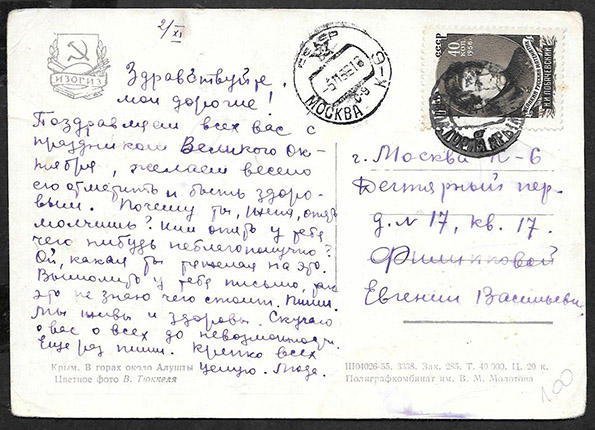 2/XI
ИЗОГИЗ
Здравствуйте,
мои дорогие!
Поздравляем всех вас с
праздником Великого Ок-
тября, желаем весело
его отметить и быть здоро-
выми. Почему ты, Женя, опять
молчишь? Или опять у тебя
чего нибудь неблагополучно?
Ой, какая ты тяжелая на это.
Вымолить у тебя письмо, так
это не знаю чего стоит. Пиши.
Мы живы и здоровы. Скучаю
о вас о всех до невозможности.
Еще раз пиши. Крепко всех
целую. Люда.
Крым. В горах около Алушты
Цветное фото В. Тюккеля
МОСКВА
СССР
40
КОП
1956
Н.И.ЛОБАЧЕВСКИЙ
г. Москва К-6
Дегтярный пер.
д. N 17, кв. 17.
Филипповой
Евгении Васильевне
Ш04026-55. 3358. Зак. 285. Т. 40 000. Ц. 20 к.
Полиграфкомбинат им. В. М. Молотова
100